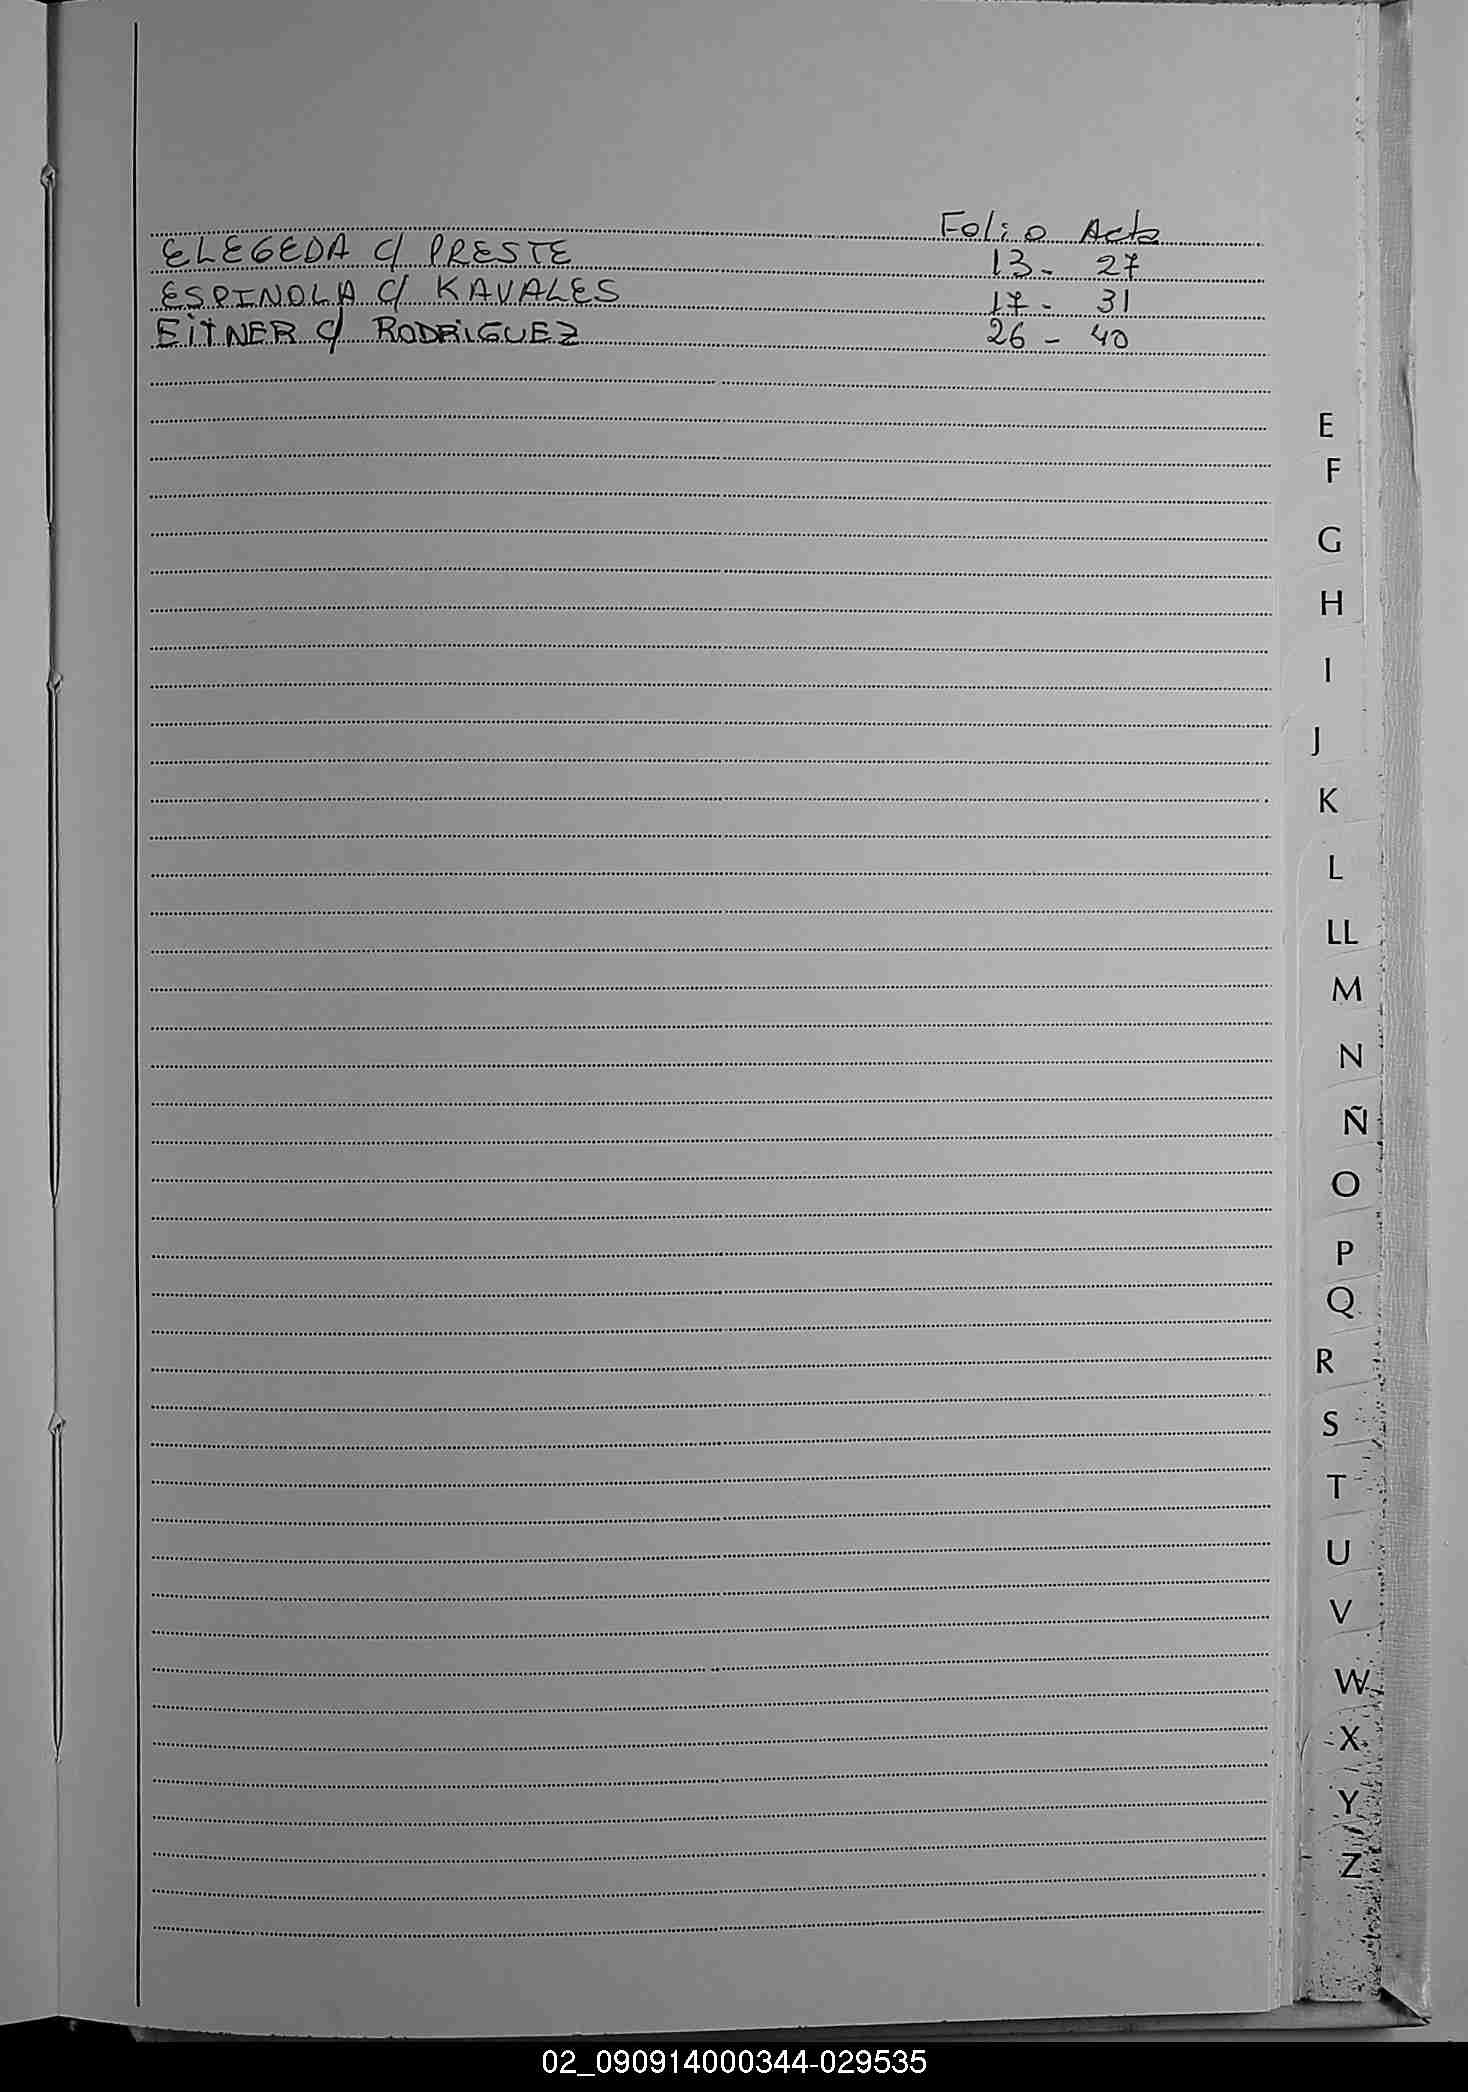 Folio Acta
ELEGEDA c/ PRESTE 13 - 27
ESPINOLA c/ KAVALES 17 - 31
EITNER c/ RODRIGUEZ 26 - 40
E
F
G
H
I
J
K
L
LL
M
N
Ñ
O
P
Q
R
S
T
U
V
W
X
Y
Z
02_090914000344-029535